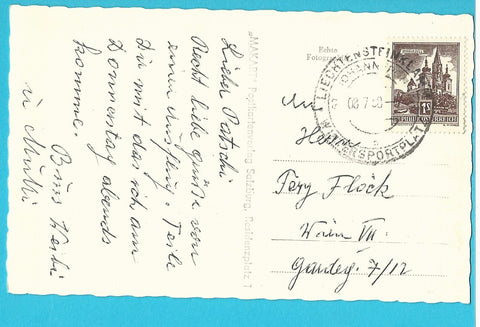 Lieber Patschi
Recht liebe Grüße vom
einen Ausflug. Teile
Dir mit das ich am
Donnerstag abends
komme.
Buss Herbi
u Mutti
"MAKART" Postkartenverlag Salzburg, Residenzplatz
Echte
LIECHTENSTEINKL
JOHANN
08 7
WINTERSPORTPLATZ
1S
REPUBLIK ÖSTERREICH
An
Herrn
Flöck
Wien VII.
7/12